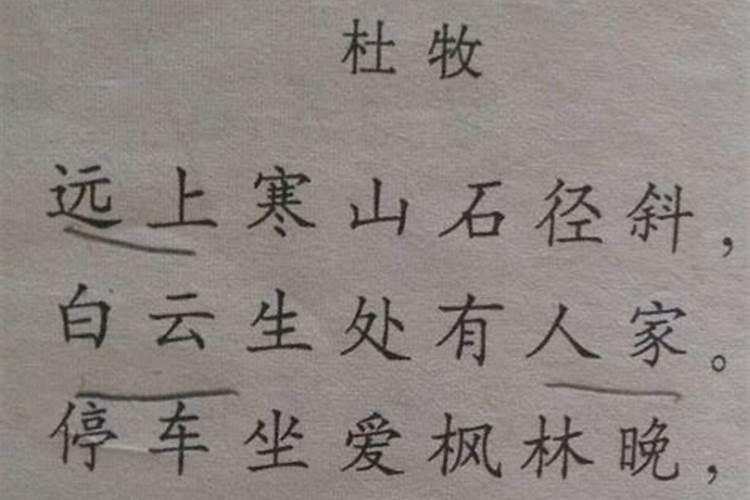 杜牧
远上寒山石径斜，
白云生处有人家。
停车坐爱枫林晚，